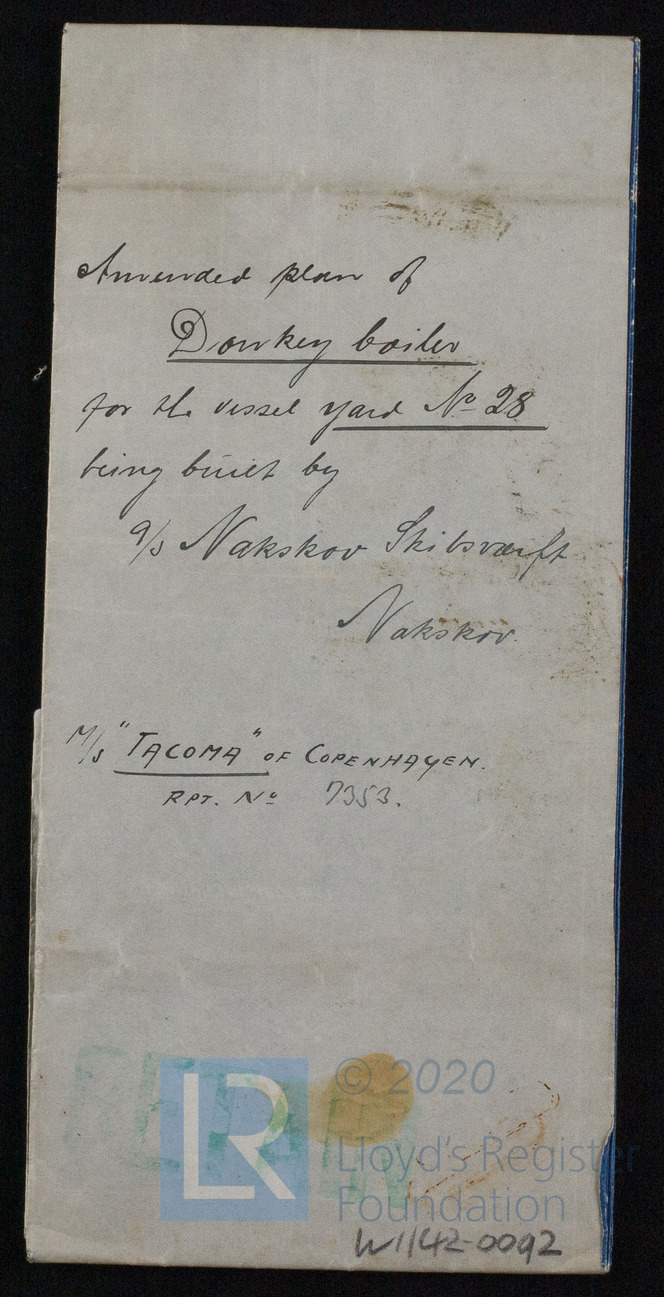 Amended plan of
Donkey boiler
for the vessel yard No 28
being built by
a/s Nakskov Skibsværft
Nakskov.
M/S "TACOMA" OF COPENHAGEN.
RPT. No 7353.
LR
© 2020
Lloyd's Register
Foundation
W1142-0092